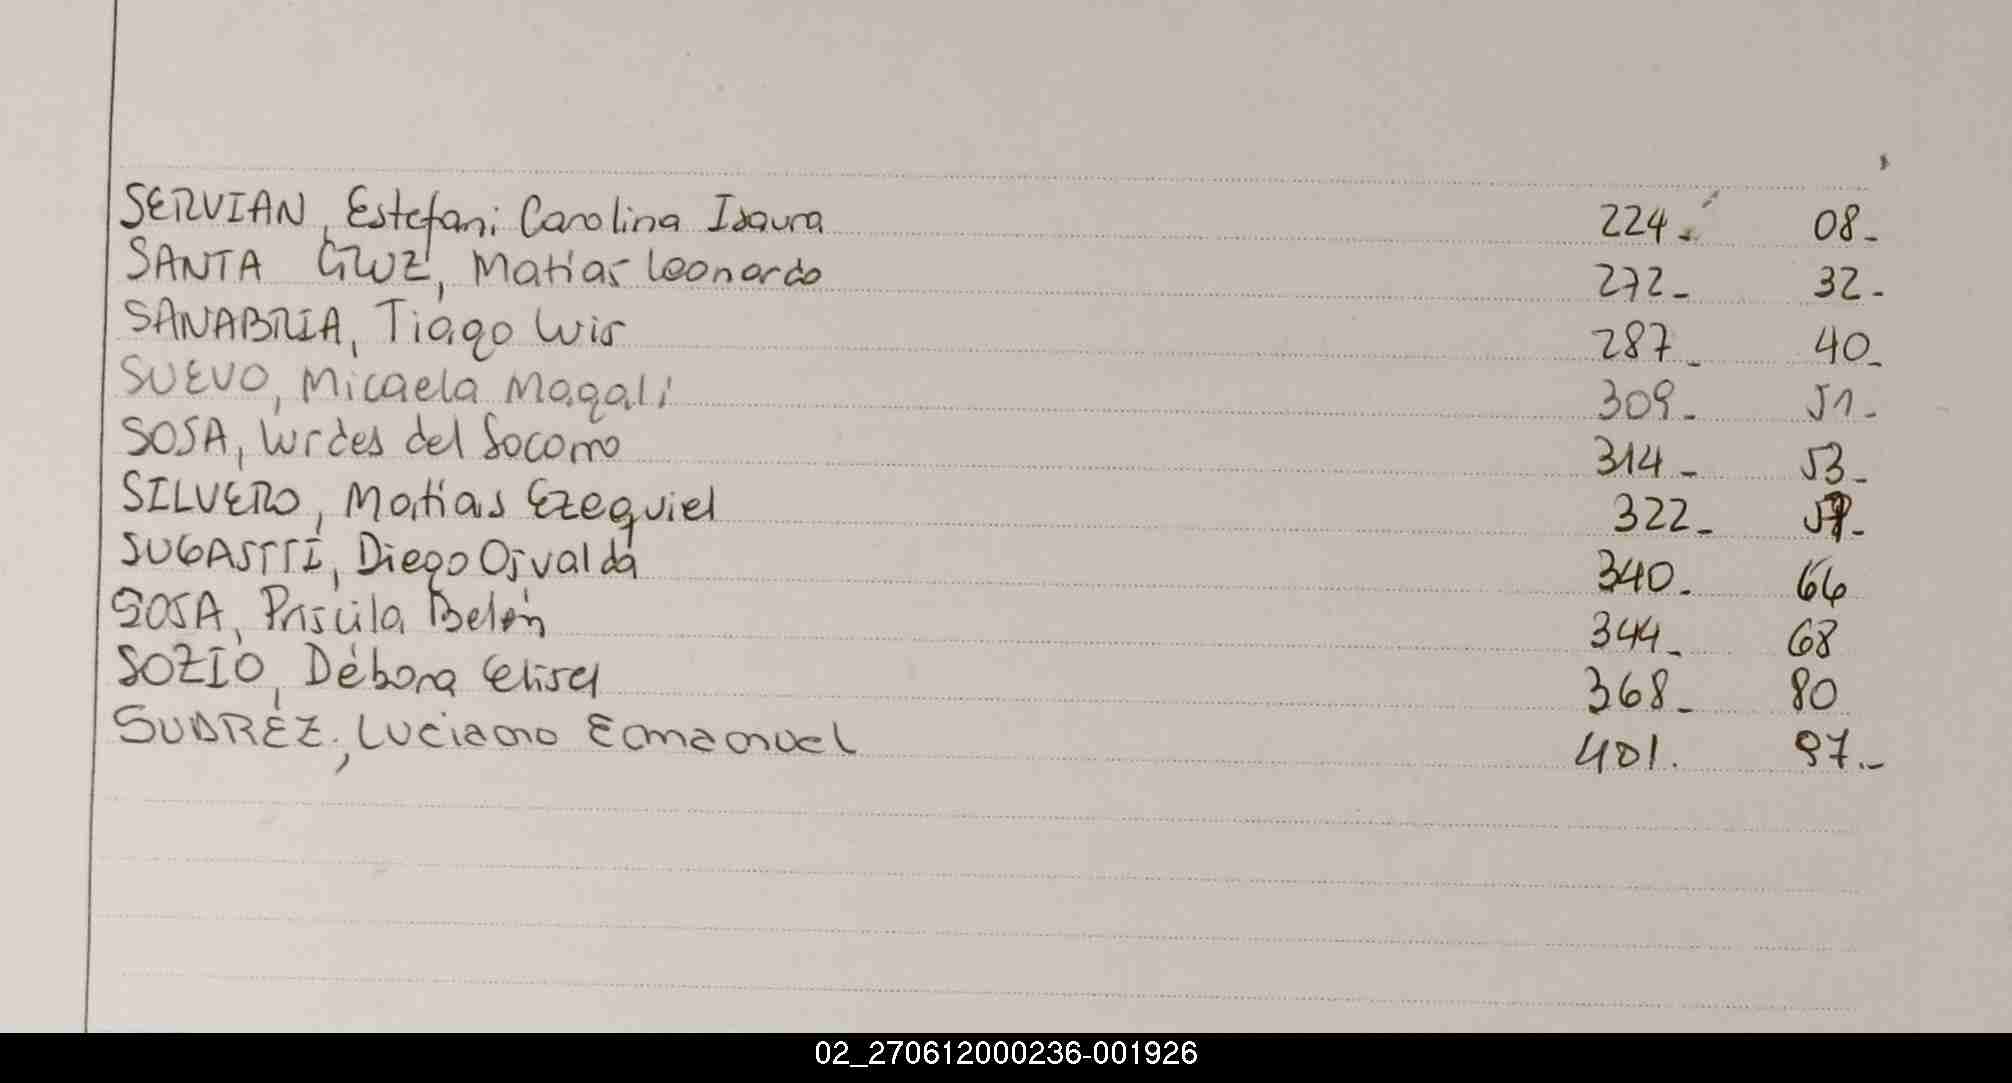 SERVIAN, Estefani Carolina Isaura 224- 08-
SANTA CRUZ, Matias Leonardo 272- 32-
SANABRIA, Tiago Luis 287- 40-
SUEVO, Micaela Magali 309- 51-
SOSA, Lurdes del Socorro 314- 53-
SILVERO, Matias Ezequiel 322-
SUGASTTI, Diego Osvaldo 340- 66
SOSA, Priscila Belén 344- 68
SOZIO, Débora Elisel 368- 80
SUAREZ, Luciano Emmanuel 401. 97.-
02_270612000236-001926